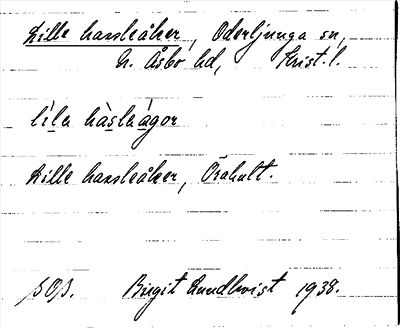 Lille hassleåker, Oderljunga sn,
N. Åsbo hd, Krist. l.
líla hàslaágor
Lille hassleåker, Örahult.
Birgit Lundkvist 1938.